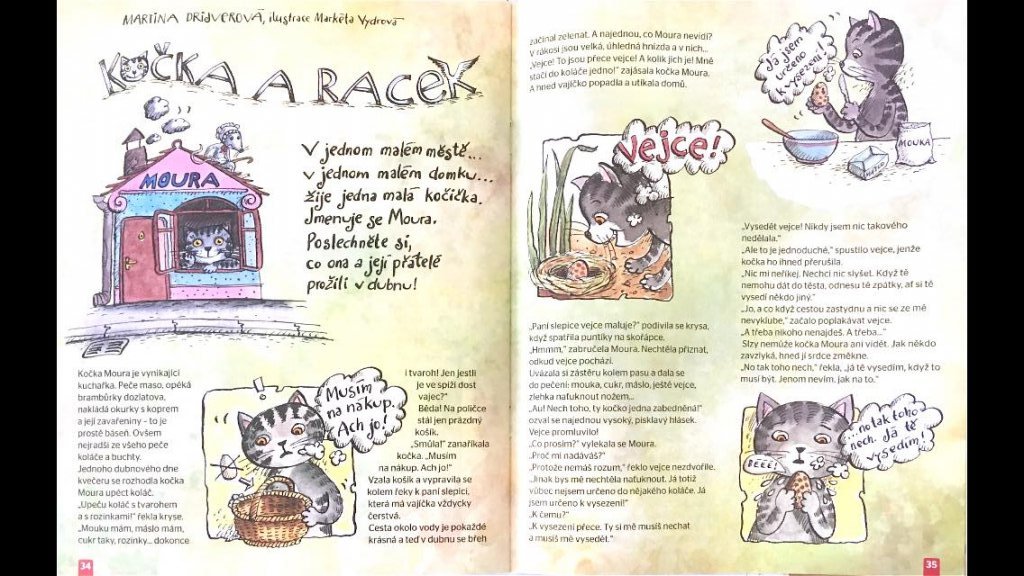 MARTINA DRIJVEROVÁ, ilustrace Markéta Vydrová
KOČKA A RACEK
MOURA
V jednom malém městě...
v jednom malém domku...
žije jedna malá kočička.
Jmenuje se Moura.
Poslechněte si,
co ona a její přátelé
prožili v dubnu!
Kočka Moura je vynikající
kuchařka. Peče maso, opéká
brambůrky dozlatova,
nakládá okurky s koprem
a její zavařeniny – to je
prostě báseň. Ovšem
nejradši ze všeho peče
koláče a buchty.
Jednoho dubnového dne
kvečeru se rozhodla kočka
Moura upéct koláč.
„Upeču koláč s tvarohem
a s rozinkami!“ řekla kryse.
„Mouku mám, máslo mám,
cukr taky, rozinky... dokonce
Musím
na nákup.
Ach jo!
i tvaroh! Jen jestli
je ve spíži dost
vajec?“
Běda! Na poličce
stál jen prázdný
košík.
„Smůla!“ zanaříkala
kočka. „Musím
na nákup. Ach jo!“
Vzala košík a vypravila se
kolem řeky k paní slepici,
která má vajíčka vždycky
čerstvá.
Cesta okolo vody je pokaždé
krásná a teď v dubnu se břeh
34
začínal zelenat. A najednou, co Moura nevidí?
V rákosí jsou velká, úhledná hnízda a v nich...
„Vejce! To jsou přece vejce! A kolik jich je! Mně
stačí do koláče jedno!“ zajásala kočka Moura.
A hned vajíčko popadla a utíkala domů.
Vejce!
„Paní slepice vejce maluje?“ podivila se krysa,
když spatřila puntíky na skořápce.
„Hmmm,“ zabručela Moura. Nechtěla přiznat,
odkud vejce pochází.
Uvázala si zástěru kolem pasu a dala se
do pečení: mouka, cukr, máslo, ještě vejce,
zlehka naťuknout nožem...
„Au! Nech toho, ty kočko jedna zabedněná!“
ozval se najednou vysoký, pisklavý hlásek.
Vejce promluvilo!
„Co prosím?“ vylekala se Moura.
„Proč mi nadáváš?“
„Protože nemáš rozum,“ řeklo vejce nezdvořile.
„Jinak bys mě nechtěla naťuknout. Já totiž
vůbec nejsem určeno do nějakého koláče. Já
jsem určeno k vysezení!“
„K čemu?“
„K vysezení přece. Ty si mě musíš nechat
a musíš mě vysedět.“
Já jsem
určeno
k vysezení!
MOUKA
„Vysedět vejce! Nikdy jsem nic takového
nedělala.“
„Ale to je jednoduché,“ spustilo vejce, jenže
kočka ho ihned přerušila.
„Nic mi neříkej. Nechci nic slyšet. Když tě
nemohu dát do těsta, odnesu tě zpátky, ať si tě
vysedí někdo jiný.“
„Jo, a co když cestou zastydnu a nic se ze mě
nevyklube,“ začalo poplakávat vejce.
„A třeba nikoho nenajdeš. A třeba...“
Slzy nemůže kočka Moura ani vidět. Jak někdo
zavzlyká, hned jí srdce změkne.
„No tak toho nech,“ řekla, „já tě vysedím, když to
musí být. Jenom nevím, jak na to.“
...no tak toho
nech. Já tě
vysedím!
BÉÉÉ!
35